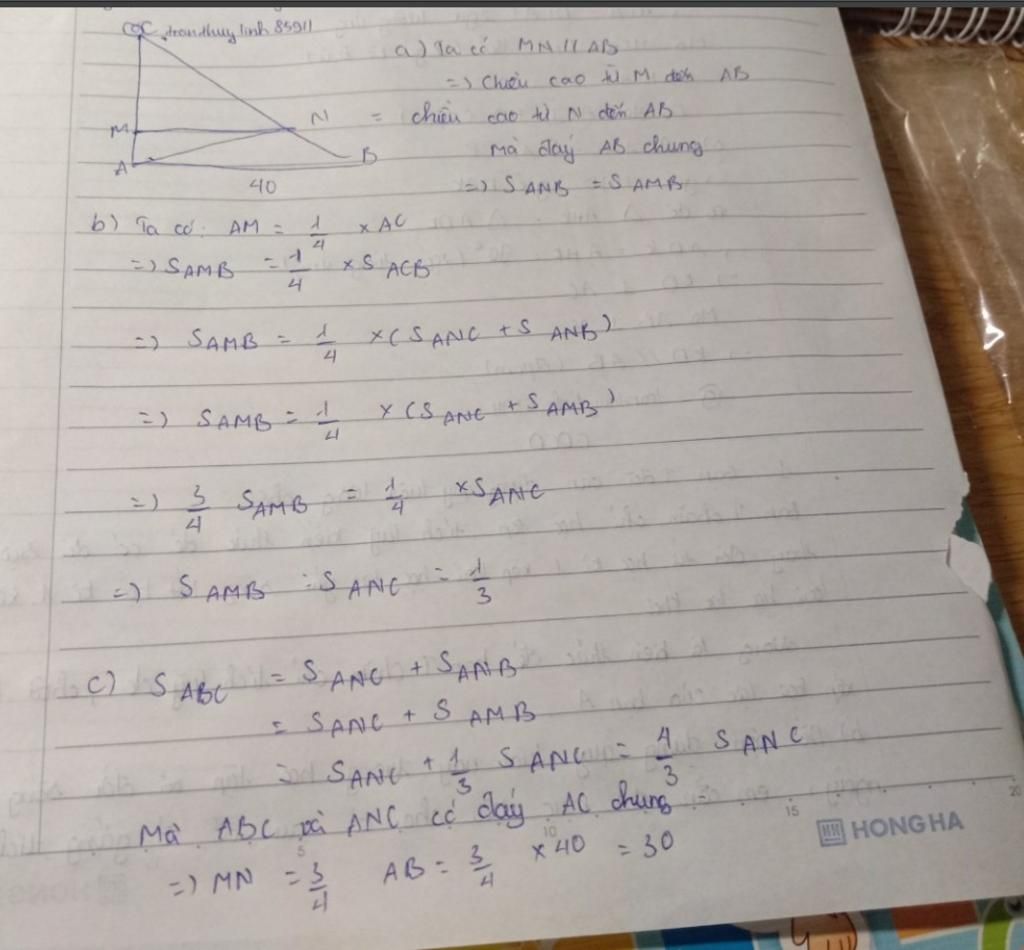 C
tranthuylinh85911
M
N
A
B
40
a) Ta có MN // AB
=> Chiều cao từ M đến AB
= chiều cao từ N đến AB
Mà đáy AB chung
=> S ANB = S AMB
b) Ta có: AM = 1/4 x AC
=> S AMB = 1/4 x S ACB
=> S AMB = 1/4 x (S ANC + S ANB)
=> S AMB = 1/4 x (S ANC + S AMB)
=> 3/4 S AMB = 1/4 x S ANC
=> S AMB : S ANC = 1/3
c) S ABC = S ANC + S ANB
= S ANC + S AMB
= S ANC + 1/3 S ANC = 4/3 S ANC
Mà ABC và ANC có đáy AC chung
=> MN = 3/4 AB = 3/4 x 40 = 30
5 10 15 20
HH HONG HA